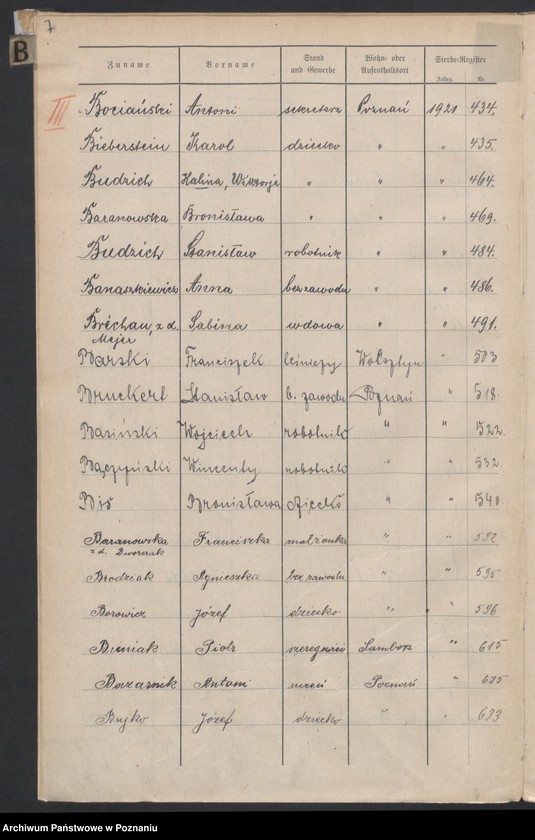 7
B
Zuname Vorname Stand und Gewerbe Wohn- oder Aufenthaltsort Sterbe-Register
Jahrg. Nr.
III
Bociański Antoni sekretarz Poznań 1921 434.
Bieberstein Karol dziecko " " 435.
Budzich Halina, Wiktorja " " " 464.
Baranowska Bronisława " " " 469.
Budzich Stanisław robotnik " " 484.
Banaszkiewicz Anna bez zawodu " " 486.
Bréchau, z d. Sabina wdowa " " 491.
Majer
Barski Franciszek leśniczy Wolsztyn " 503
Bruckert Stanisław b. zawodu Poznań " 518.
Basiński Wojciech robotnik " " 522.
Bączyński Wincenty robotnik " " 532.
Biś Bronisława dziecko " " 540.
Baranowska Franciszka małżonka " " 592
z d. Dworczak
Brodziak Agnieszka bez zawodu " " 595
Borowicz Józef dziecko " " 596
Buniak Piotr Sambor " 615
Bazarnik Antoni uczeń Poznań " 625
Bujko Józef dziecko " " 633
Archiwum Państwowe w Poznaniu